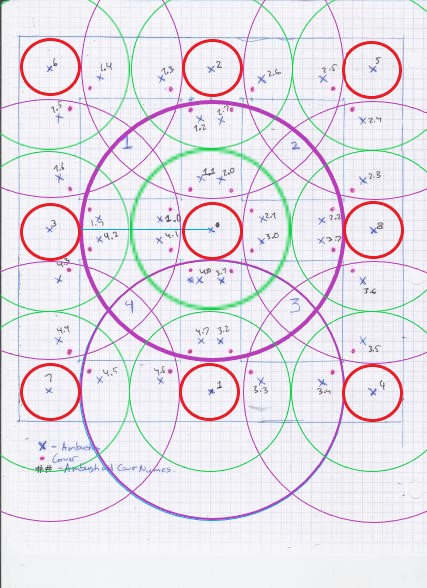 6
1.4
1.3
2
2.6
2.5
5
1.5
1.2
2.4
1
2
1.6
1.1 2.0
2.3
3
1.3
1.0
0
2.1
2.2
8
4.2
4.1
3.0
3.7
3.1
3.6
4
3
4.4
4.7 3.2
3.5
7
4.5
4.6
1
3.3
3.4
4
X - Ambush
Cover
#.# - Ambush and Cover Names.